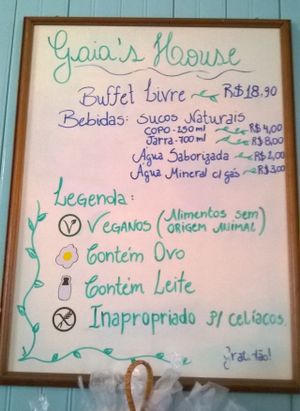 Gaia's House
Buffet Livre R$18,90
Bebidas: Sucos Naturais
COPO - 250 ml R$4,00
Jarra - 700 ml R$8,00
Água Saborizada R$2,00
Água Mineral c/ gás R$3,00
Legenda:
VEGANOS (Alimentos sem
ORIGEM ANIMAL)
Contém Ovo
Contém Leite
Inapropriado p/ celíacos.
Gratidão!